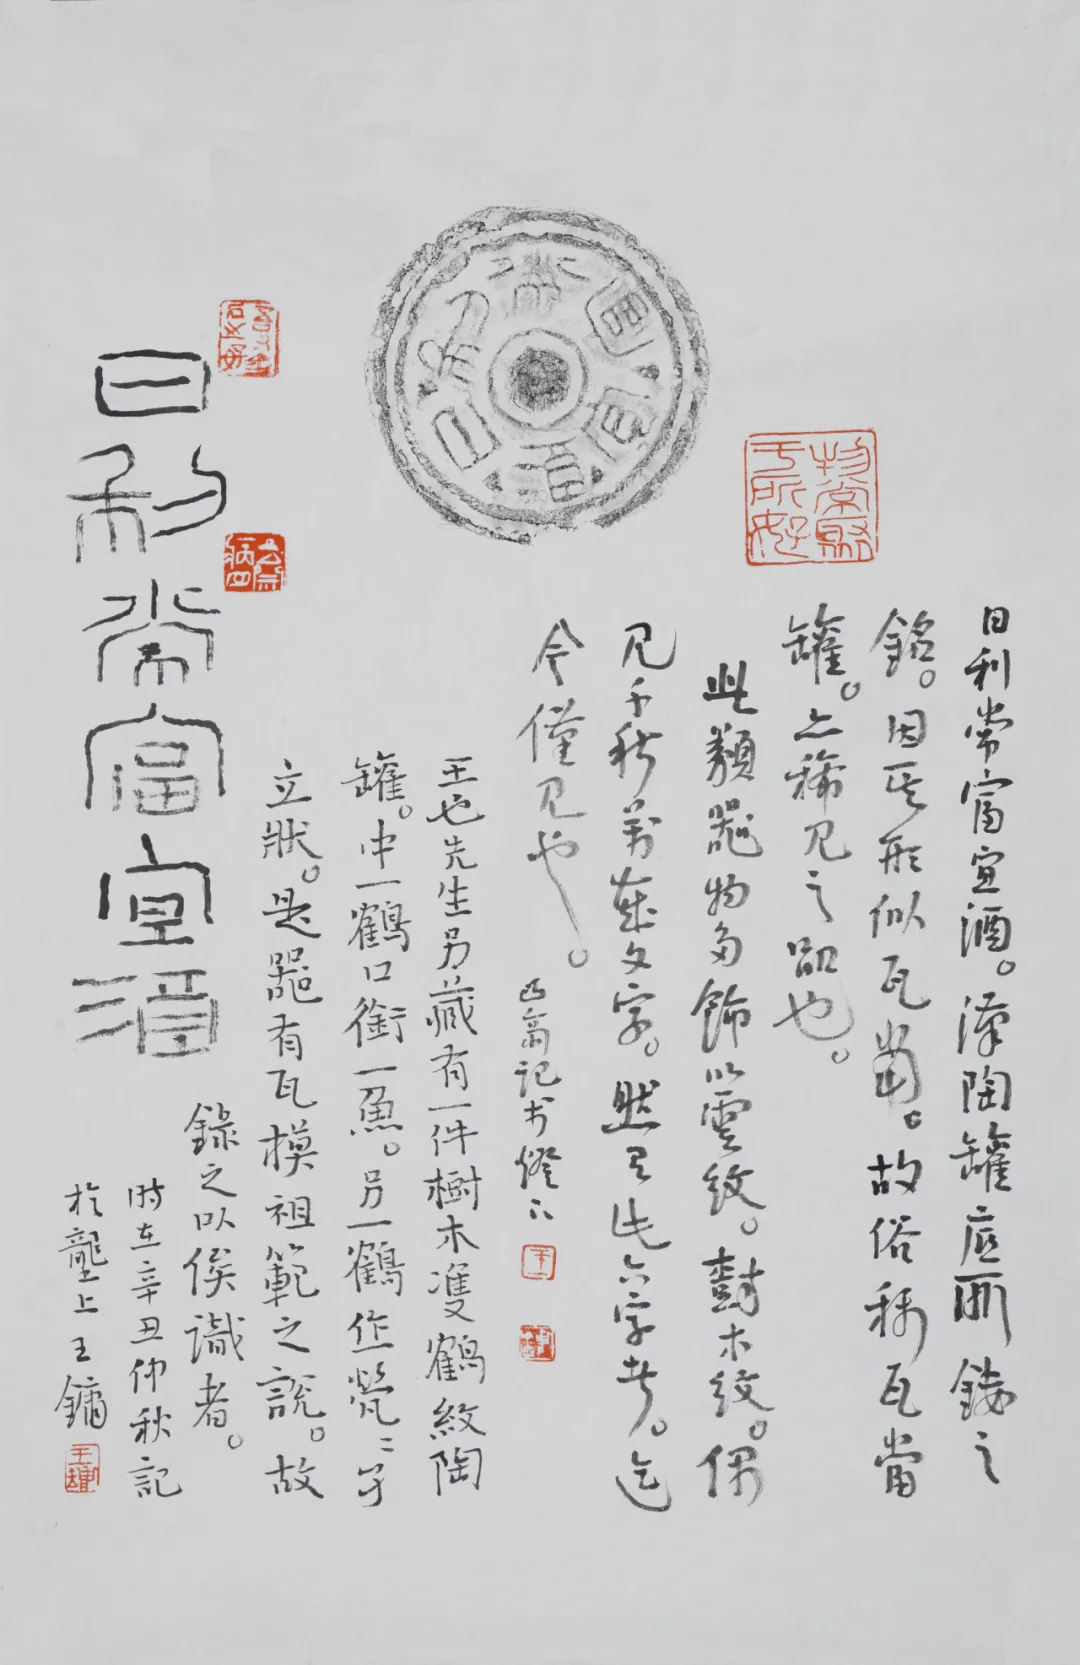 日利常富宜酒
物常聚于所好
日利常富宜酒。漢陶罐底所鏤之
銘。因其形似瓦當。故俗稱瓦當
罐。亦稀見之也。
此類器物多飾以雲紋。樹木紋。偶
見千秋萬歲文字。然具此六字者。迄
今僅見也。
凸齋記於燈下
王
王也先生另藏有一件樹木雙鶴紋陶
罐。中一鶴口銜一魚。另一鶴作煢〻孑
立狀。是器有瓦模祖範之說。故
錄之以俟識者。
時在辛丑仲秋記
於壟上王鏞
王鏞
日利常富宜酒